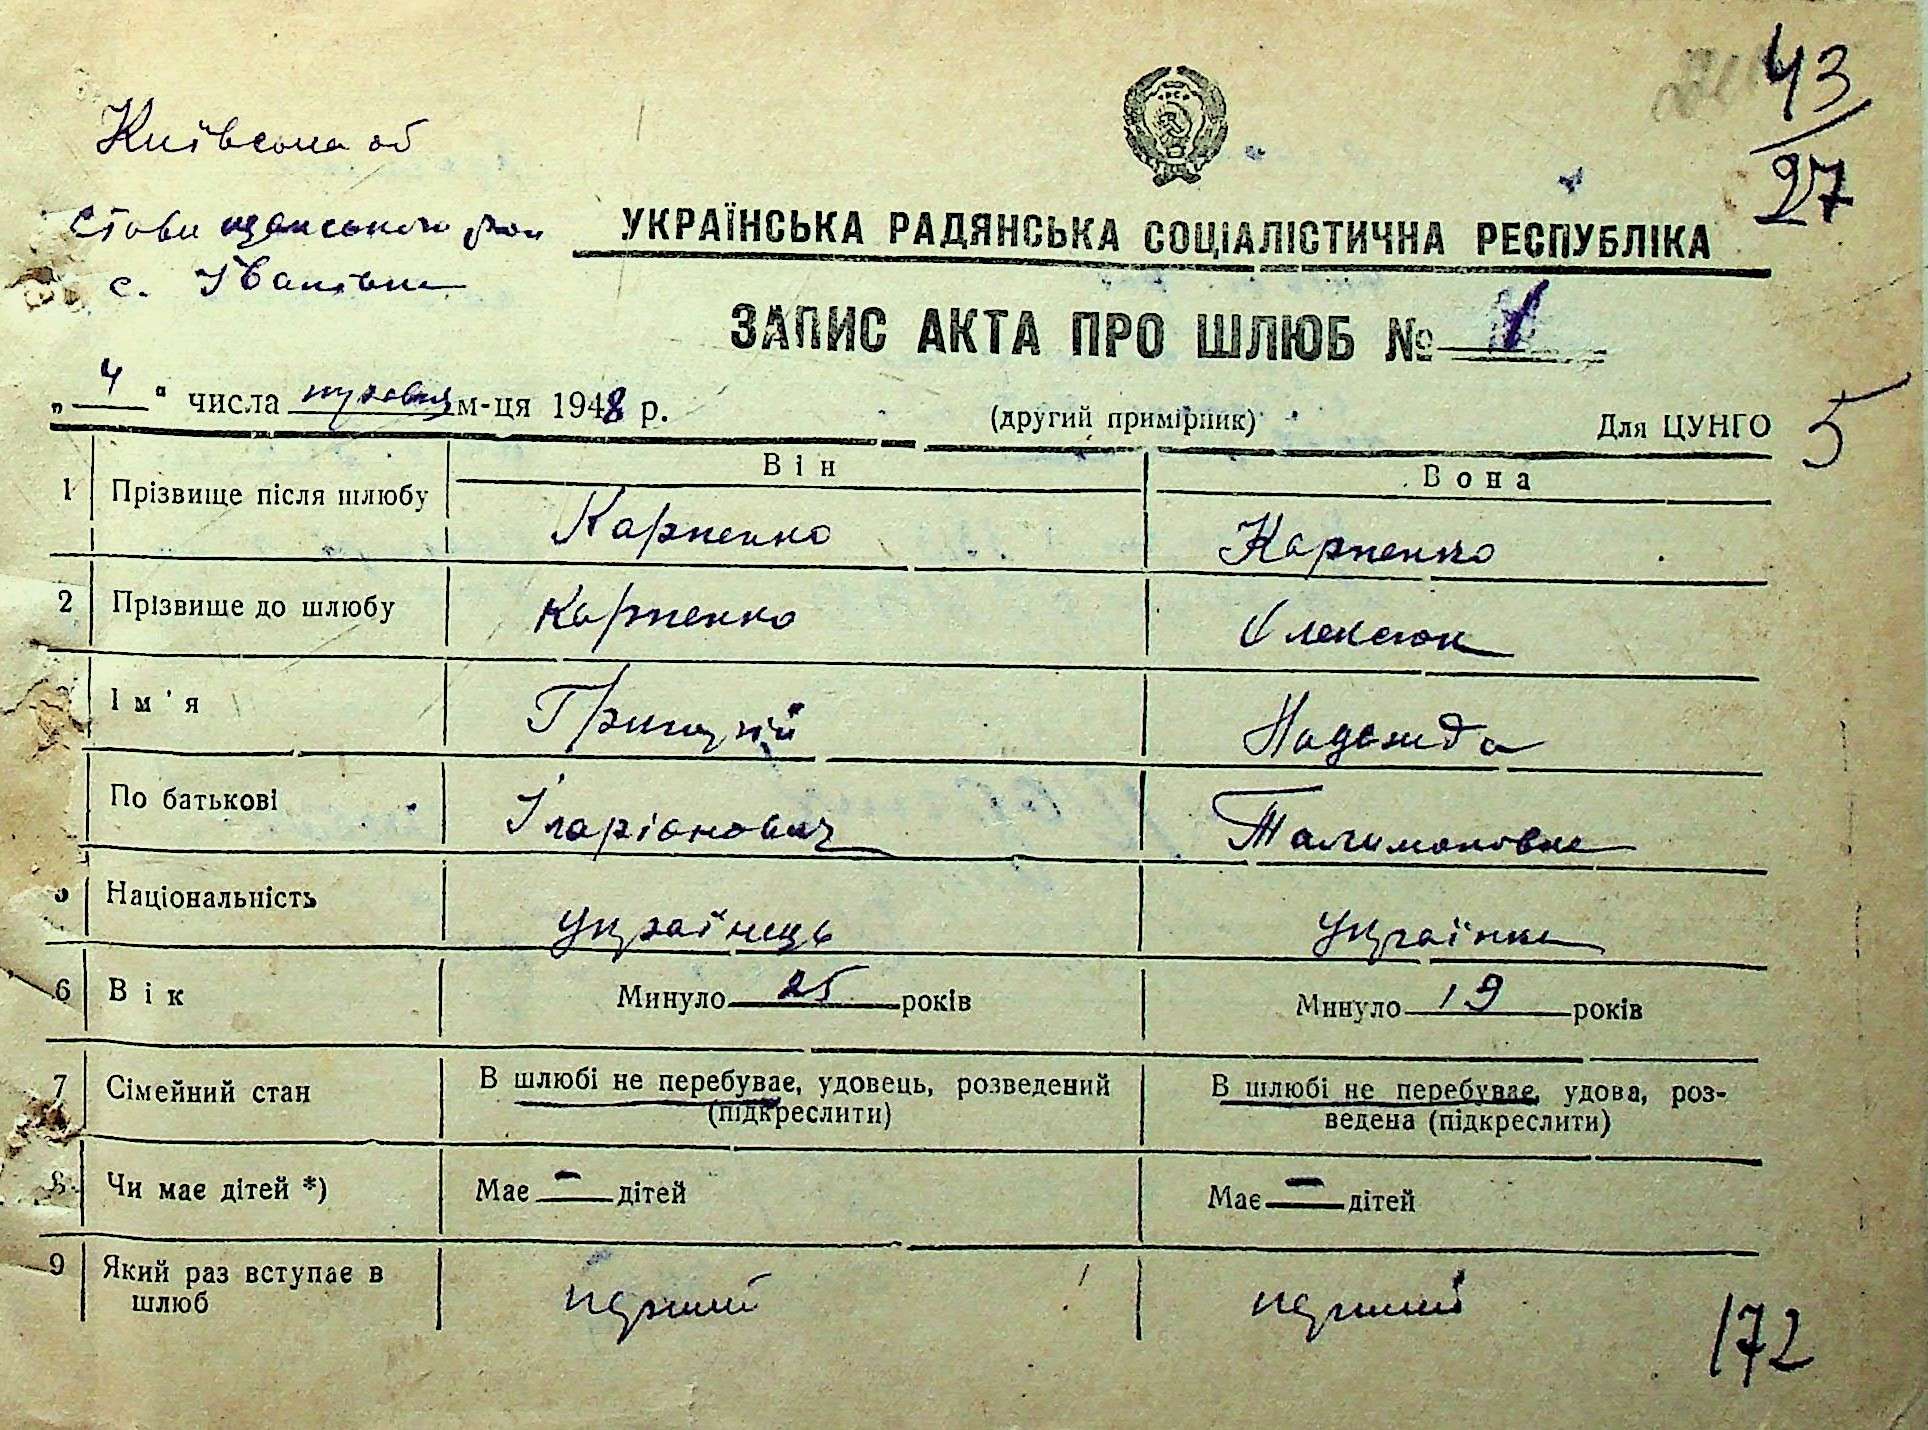 43
27
Київська об
Ставищанського рай
с. Іванівка
УКРАЇНСЬКА РАДЯНСЬКА СОЦІАЛІСТИЧНА РЕСПУБЛІКА
ЗАПИС АКТА ПРО ШЛЮБ №
„ 4 " числа травня м-ця 1948 р. (другий примірник) Для ЦУНГО 5
Він Вона
1 Прізвище після шлюбу Карпенко Карпенко
2 Прізвище до шлюбу Карпенко Олексюк
Ім'я Григорій Надежда
По батькові Іларіонович Талимоновна
Національність українець українка
6 Вік Минуло 25 років Минуло 19 років
7 Сімейний стан В шлюбі не перебуває, удовець, розведений (підкреслити) В шлюбі не перебуває, удова, роз-
ведена (підкреслити)
8 Чи має дітей *) Має — дітей Має — дітей
9 Який раз вступає в шлюб перший перший
172